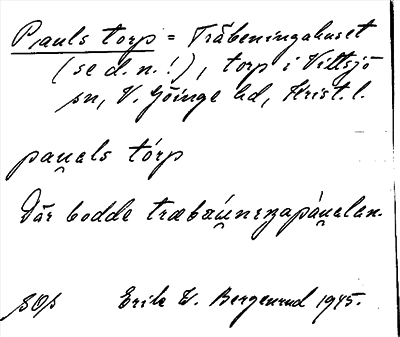 Pauls torp = Träbeningahuset
(se d. n.!), torp i Vittsjö
sn, V. Göinge hd, Krist. l.
pau̯als tórp
Där bodde
SOs Erik W. Bergenrud 1945.